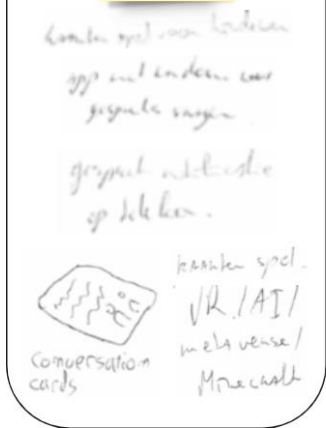 kaarten spel voor kinderen
app met anderen voor
gesprek vragen
gesprek
op
Conversation
cards
kaarten spel.
VR/AI/
metaverse/
Minecraft